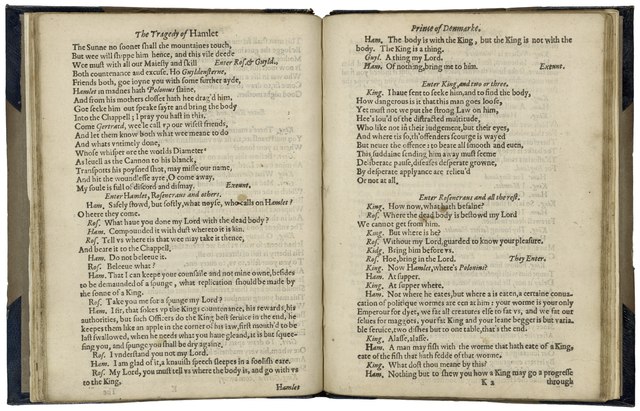 The Tragedy of Hamlet
The Sunne no sooner shall the mountaines touch,
But wee will shippe him hence, and this vile deede
Wee must with all our Maiesty and skill Enter Ros. & Guyld.
Both countenance and excuse. Ho Guyldensterne,
Friends both, goe ioyne you with some further ayde,
Hamlet in madnes hath Polonius slaine,
And from his mothers closset hath hee drag'd him,
Goe seeke him out speake fayre and bring the body
Into the Chappell; I pray you hast in this.
Come Gertrard, wee'le call vp our wisest friends,
And let them know both what wee meane to do
And whats vntimely done,
Whose whisper ore the worlds Diameter
As leuell as the Cannon to his blanck,
Transports his poysned shot, may misse our name,
And hit the woundlesse ayre, O come away,
My soule is full of discord and dismay. Exeunt.
Enter Hamlet, Rosencraus and others.
Ham. Safely stowd, but softly, what noyse, who calls on Hamlet?
O heere they come.
Ros. What haue you done my Lord with the dead body?
Ham. Compounded it with dust whereto it is kin.
Ros. Tell vs where tis that wee may take it thence,
And beare it to the Chappell.
Ham. Do not beleeue it.
Ros. Beleeue what?
Ham. That I can keepe your counsaile and not mine owne, besides
to be demaunded of a spunge, what replication should be made by
the sonne of a King.
Ros. Take you me for a spunge my Lord?
Ham. I sir, that sokes vp the Kings countenance, his rewards, his
authorities, but such Officers do the King best seruice in the end, he
keepes them like an apple in the corner of his iaw, first mouth'd to be
last swallowed, when he needs what you haue gleand, it is but squee-
sing you, and spunge you shall be dry againe.
Ros. I vnderstand you not my Lord.
Ham. I am glad of it, a knauish speech sleepes in a foolish eare.
Ros. My Lord, you must tell vs where the body is, and go with vs
to the King,
Hamlet
Prince of Denmarke.
Ham. The body is with the King, but the King is not with the
body. The King is a thing.
Guyl. A thing my Lord.
Ham. Of nothing, bring me to him. Exeunt.
Enter King, and two or three.
King. I haue sent to seeke him, and to find the body,
How dangerous is it that this man goes loose,
Yet must not we put the strong Law on him,
Hee's lou'd of the distracted multitude,
Who like not in their iudgement, but their eyes,
And where tis so, th'offenders scourge is wayed
But neuer the offence: to beare all smooth and euen,
This suddaine sending him away must seeme
Deliberate pause, diseases desperate growne,
By desperate applyance are relieu'd
Or not at all.
Enter Rosencraus and all the rest.
King. How now, what hath befalne?
Ros. Where the dead body is bestowd my Lord
We cannot get from him.
King. But where is he?
Ros. Without my Lord, guarded to know your pleasure.
King. Bring him before vs.
Ros. Hoe, bring in the Lord. They Enter.
King. Now Hamlet, where's Polonius?
Ham. At supper.
King. At supper where.
Ham. Not where he eates, but where a is eaten, a certaine conua-
cation of politique wormes are een at him: your worme is your only
Emperour for dyet, we fat all creatures else to fat vs, and we fat our
selues for maggots, your fat King and your leane begger is but varia-
ble seruice, two dishes but to one table, that's the end.
King. Alasse, alasse.
Ham. A man may fish with the worme that hath eate of a King,
eate of the fish that hath fedde of that worme.
King. What dost thou meane by this?
Ham. Nothing but to shew you how a King may go a progresse
K 2 through